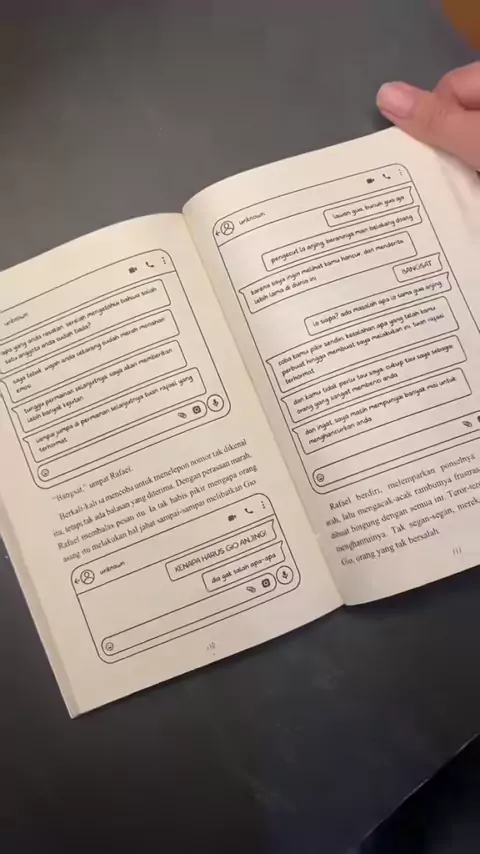 unknown
apa yang anda rasakan setelah mengetahui bahwa salah
satu anggota anda sudah tiada?
saya tebak wajah anda sekarang sudah merah menahan
emosi
tunggu permainan selanjutnya saya akan memberikan
lebih banyak kejutan
sampai jumpa di permainan selanjutnya tuan rafael yang
terhormat
"Bangsat," umpat Rafael.
Berkali-kali ia mencoba untuk menelepon nomor tak dikenal
itu, tetapi tak ada balasan yang diterima. Dengan perasaan marah,
Rafael membalas pesan itu. Ia tak habis pikir mengapa orang
asing itu melakukan hal jahat sampai-sampai melibatkan Gio
unknown
KENAPA HARUS GIO ANJING!
dia gak salah apa-apa
110
unknown
lawan gua, bunuh gua go
pengecut lo anjing beraninya main belakang doang
karena saya ingin melihat kamu hancur, dan menderita
lebih lama di dunia ini
BANGSAT
lo siapa? ada masalah apa lo sama gua anjing
coba kamu pikir sendiri kesalahan apa yang telah kamu
perbuat hingga membuat saya melakukan ini, tuan rafael
terhormat
dan kamu tidak perlu tau saya, cukup tau saya sebagai
orang yang sangat membenci anda
dan ingat, saya masih mempunyai banyak misi untuk
menghancurkan anda
Rafael berdiri, melemparkan ponselnya
arah, lalu mengacak-acak rambutnya frustras
dibuat bingung dengan semua ini. Teror-tero
menghantuinya. Tak segan-segan, merek
Gio, orang yang tak bersalah
111